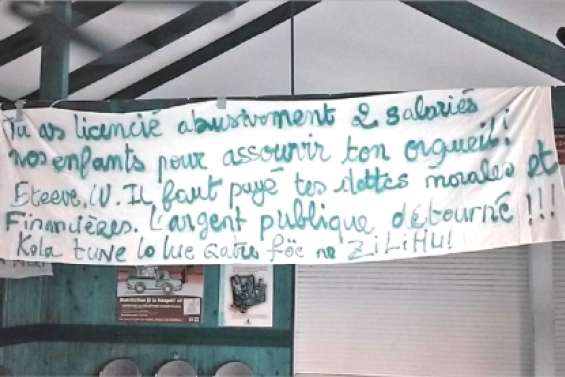 Tu as licencié abusivoment 2 salariés
nos enfants pour assouvir ton orgueil!
Eteeve. W. IL faut payé tes dettes morales et
Financières. L'argent publique détourné !!!
Kola tune lo lue Qatre föe ne ZiLiHU!